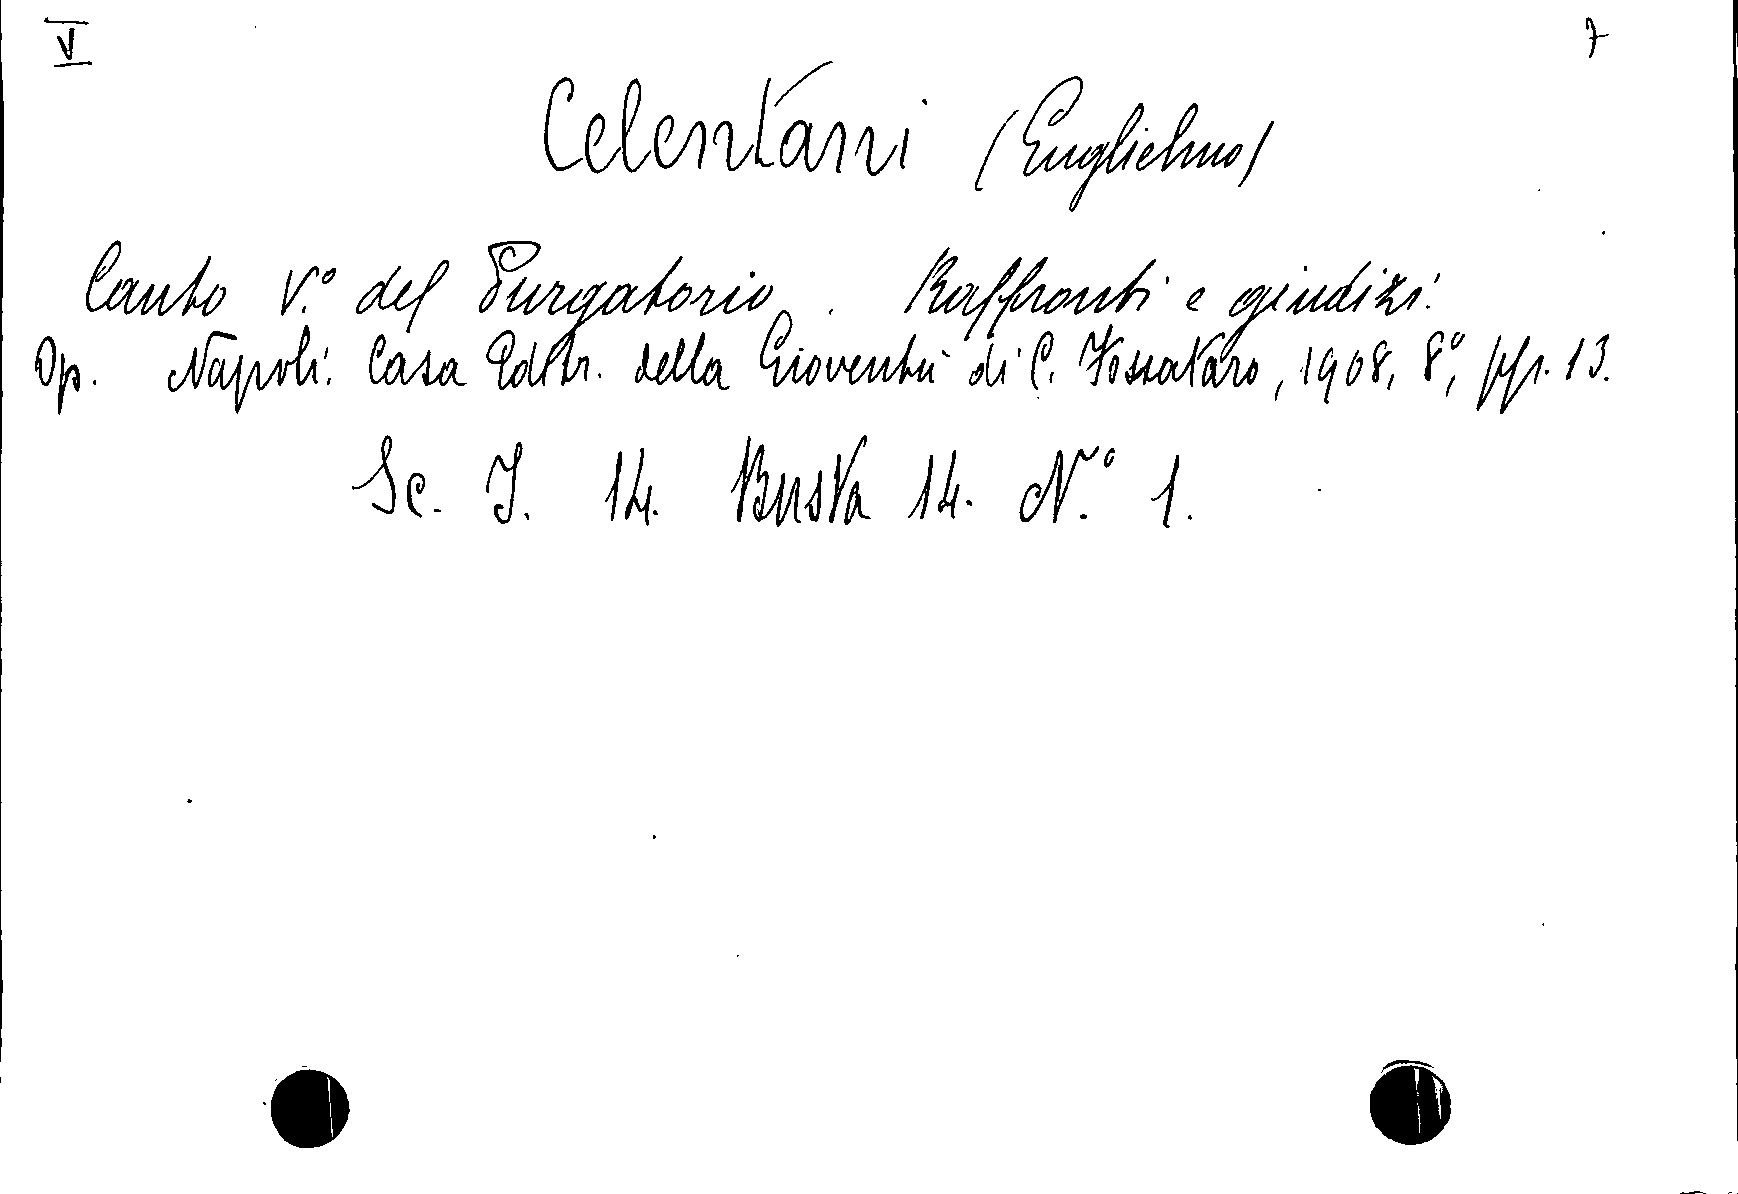 V 7
Celentani (Guglielmo)
Canto V.º del Purgatorio. Raffronti e giudizi.
Op. Napoli. Casa Editr. della Gioventù di C. Fossataro, 1908, 8º, pp. 13.
Sc. I. 14. Busta 14. N.º 1.